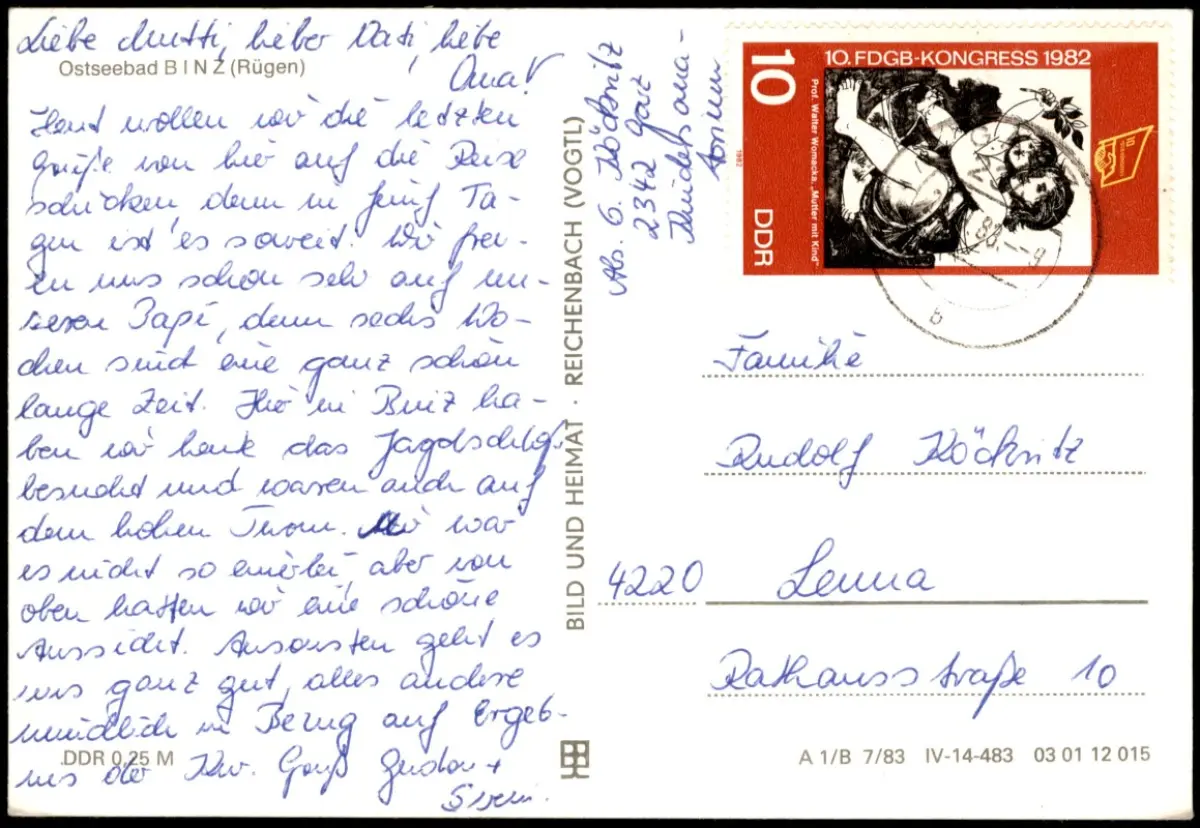 Liebe Mutti, lieber Vati, liebe
Oma!
Ostseebad BINZ (Rügen)
Heut wollen wir die letzten
Grüße von hier auf die Reise
schicken, denn in fünf Ta-
gen ist es soweit. Wir freu-
en uns schon sehr auf un-
seren Papi, denn sechs Wo-
chen sind eine ganz schön
lange Zeit. Hier in Binz ha-
ben wir heute das Jagdschloß
besucht und waren auch auf
dem hohen Turm. Mir war
es nicht so einerlei, aber von
oben hatten wir eine schöne
Aussicht. Ansonsten geht es
uns ganz gut, alles andere
mündlich in Bezug auf Ergeb-
nis der Kur. Gruß
DDR 0,25 M
BILD UND HEIMAT · REICHENBACH (VOGTL)
Abs. G. Köckritz
2342 Gait
Kindersana-
torium
10. FDGB-KONGRESS 1982
10
DDR
Prof. Walter Womacka, „Mutter mit Kind"
1982
Familie
Rudolf Köckritz
4220 Leuna
Rathausstraße 10
A 1/B 7/83 IV-14-483 03 01 12 015